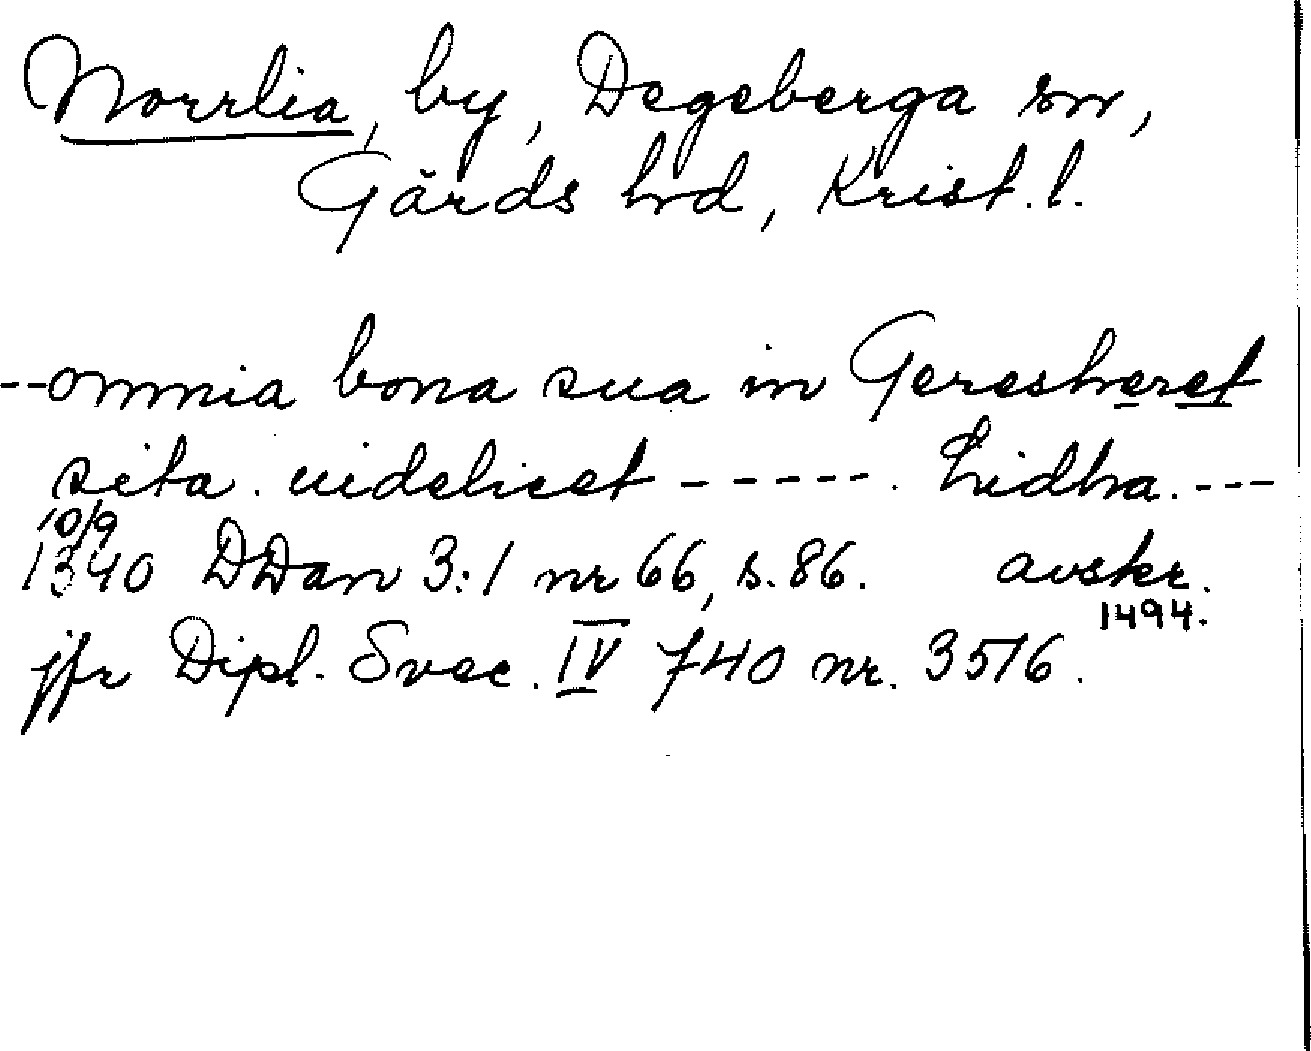 Norrlia, by, Degeberga sn,
Gärds hd, Krist. l.
--omnia bona sua in Geresheret
sita. uidelicet -----. Lidha. ---
10/9
1340 DDan 3:1 nr 66, s. 86. avskr.
1494.
jfr Dipl. Svec. IV 740 nr. 3516.